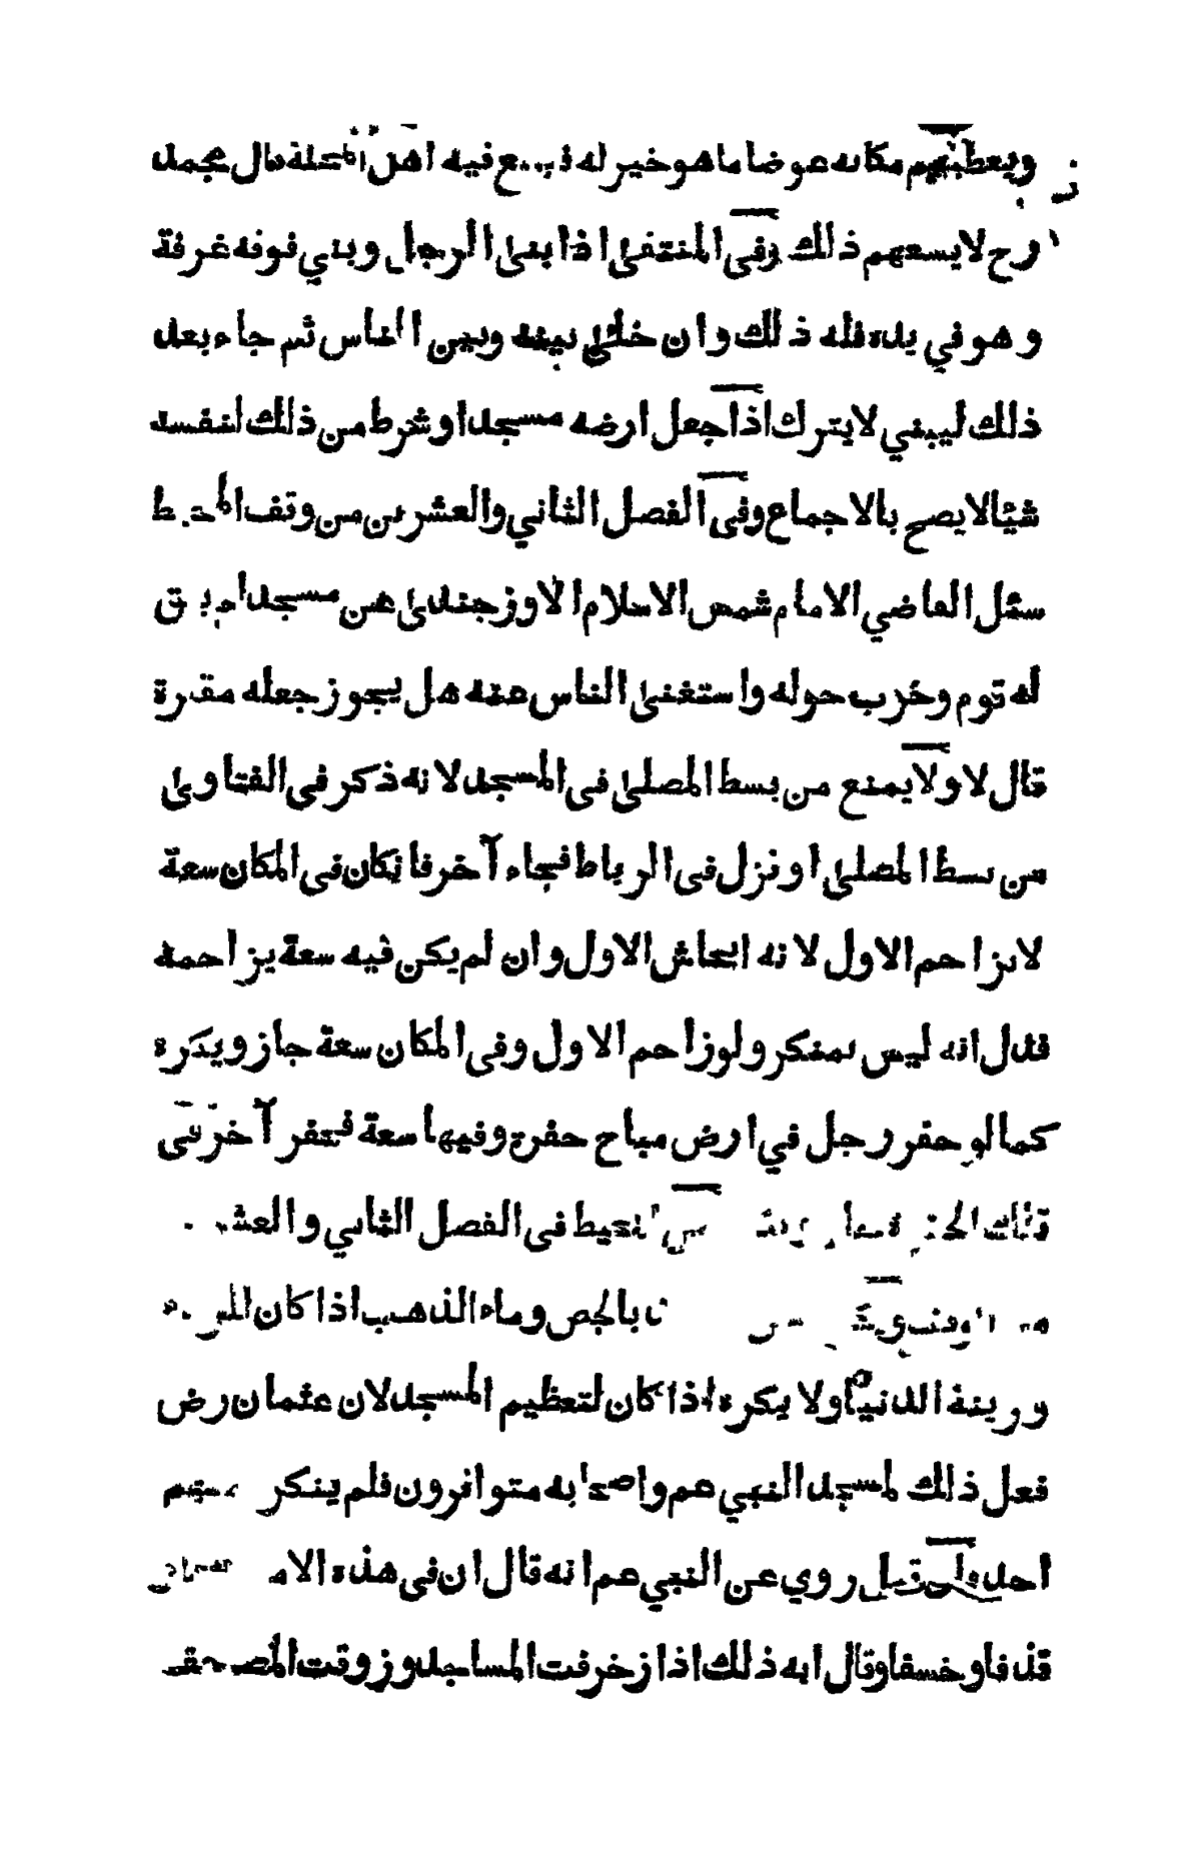 ويعطيهم مكانه عوضا ما هو خير له فيه اهل المحلة قال محمد
رح لا يسعهم ذلك وفى المنتقى اذا بنى الرجل وبني فوقه غرفة
وهو في يده فله ذلك وان خلى بينه وبين الناس ثم جاء بعد
ذلك ليبني لا يترك اذا جعل ارضه مسجدا وشرط من ذلك لنفسه
شيئا لا يصح بالاجماع وفى الفصل الثاني والعشرين من وقف المحيط
سئل القاضي الامام شمس الاسلام الاوزجندى عن مسجد لم يبق
له قوم وخرب حوله واستغنى الناس عنه هل يجوز جعله مقبرة
قال لا ولا يمنع من بسط المصلى فى المسجد لانه ذكر فى الفتاوى
من بسط المصلى او نزل فى الرباط فجاء آخر فان كان فى المكان سعة
لا يزاحم الاول لانه ايحاش الاول وان لم يكن فيه سعة يزاحمه
فدل انه ليس بمنكر ولو زاحم الاول وفى المكان سعة جاز ويكره
كما لو حفر رجل في ارض مباح حفرة وفيها سعة فحفر آخر فى
تلك المحيط فى الفصل الثاني والعشر
بالجص وماء الذهب اذا كان
وزينة الدنيا ولا يكره اذا كان لتعظيم المسجد لان عثمان رض
فعل ذلك لمسجد النبي عم واصحابه متوافرون فلم ينكر
احد وقيل روي عن النبي عم انه قال ان فى هذه الامة
قذفا وخسفا وقال ابه ذلك اذا زخرفت المساجد وزوقت